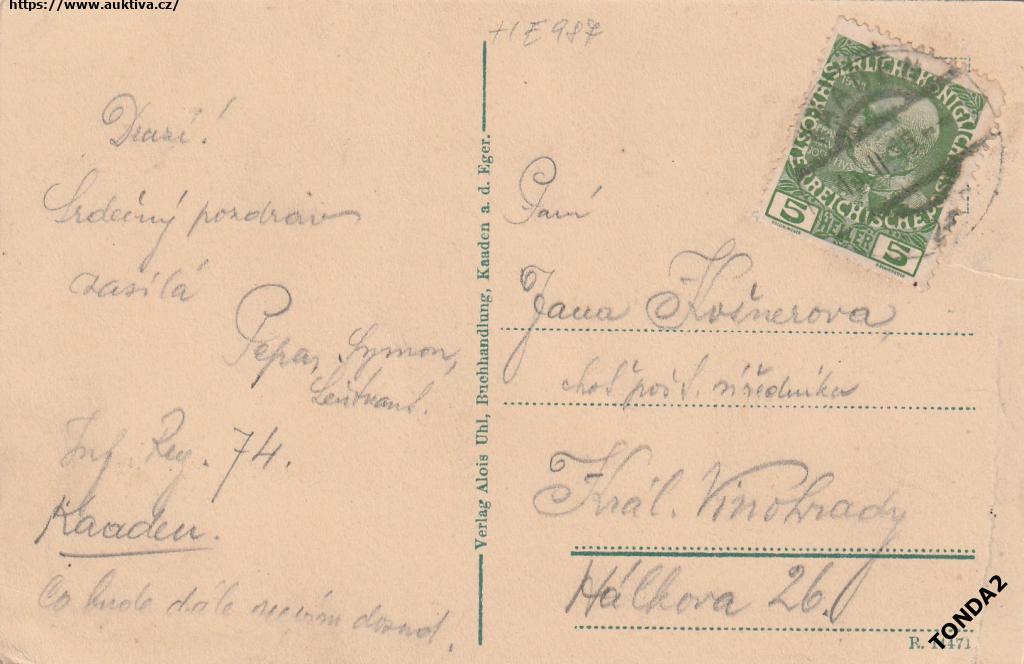 https://www.auktiva.cz/
HE 987
Drazí!
Srdečný pozdrav
zasílá
Pepa, Symon,
Leutnant.
Inf. Reg. 74.
Kaaden.
Co bude dále nevím dosud.
Verlag Alois Uhl, Buchhandlung, Kaaden a. d. Eger.
Paní
Jana Košnerova,
choť pošt. úředníka
Král. Vinohrady
Hálkova 26.
5 HELLER 5
R. 471
TONDA2